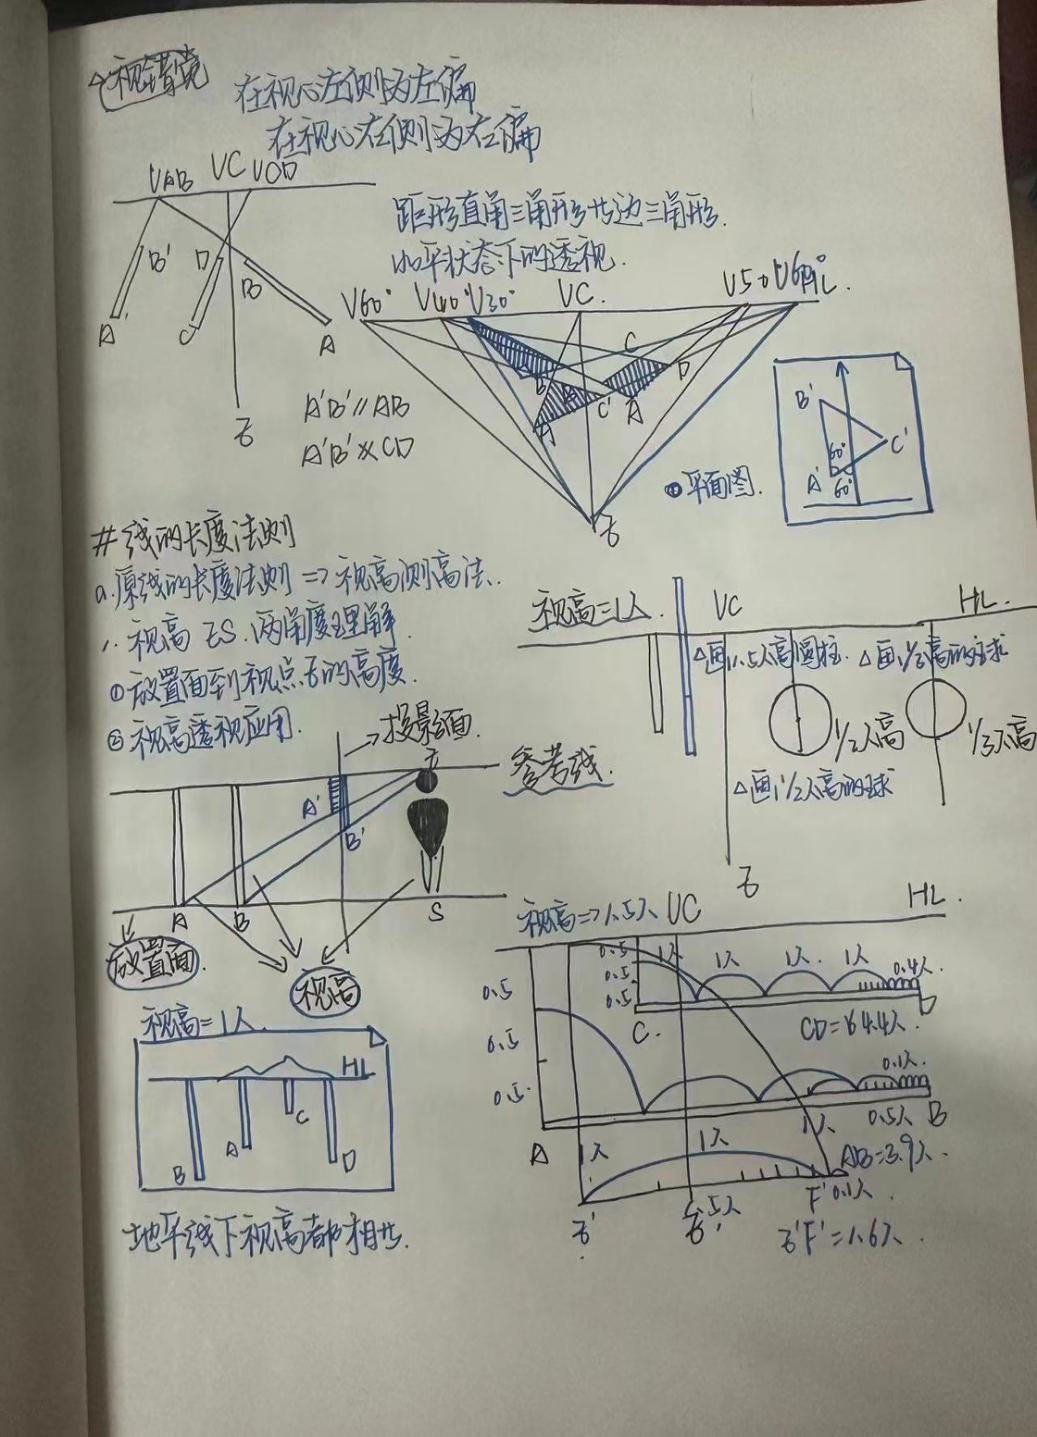 视错觉
在视心左侧为左偏
在视心右侧为右偏
VAB VC VCD
B' D B
A' C A
E
A'B'∥AB
A'B'∦CD
距形直角三角形甘边三角形.
水平状态下的透视.
V60° V40° V30° VC. V50° V60° HL.
C
B' D
A' C' A
E
①平面图.
B'
C'
A' 60°
60°
#线的长度法则
a.原线的长度法则⇒视高测高法.
1.视高ES.两角度理解.
①放置面到视点E的高度.
②视高透视应用.
→投影面.
E
A'
B'
A B S
放置面.
视高
视高=1人.
HL
B A C D
地平线下视高都相廿.
视高=1人 VC HL.
△画1.5人高圆柱. △画1/3高的球
1/2人高 1/3人高
△画1/2人高的球
参考线.
E
视高⇒1.5人 VC HL.
0.5 1人 1人 1人 1人 0.4人.
0.5
0.5
C. CD=4.4人. D
0.5
0.5
0.5
0.1人.
A 1人 1人 1人 0.5人 B
AB=3.9人.
E' E' F' 0.1人.
E'F'=1.6人